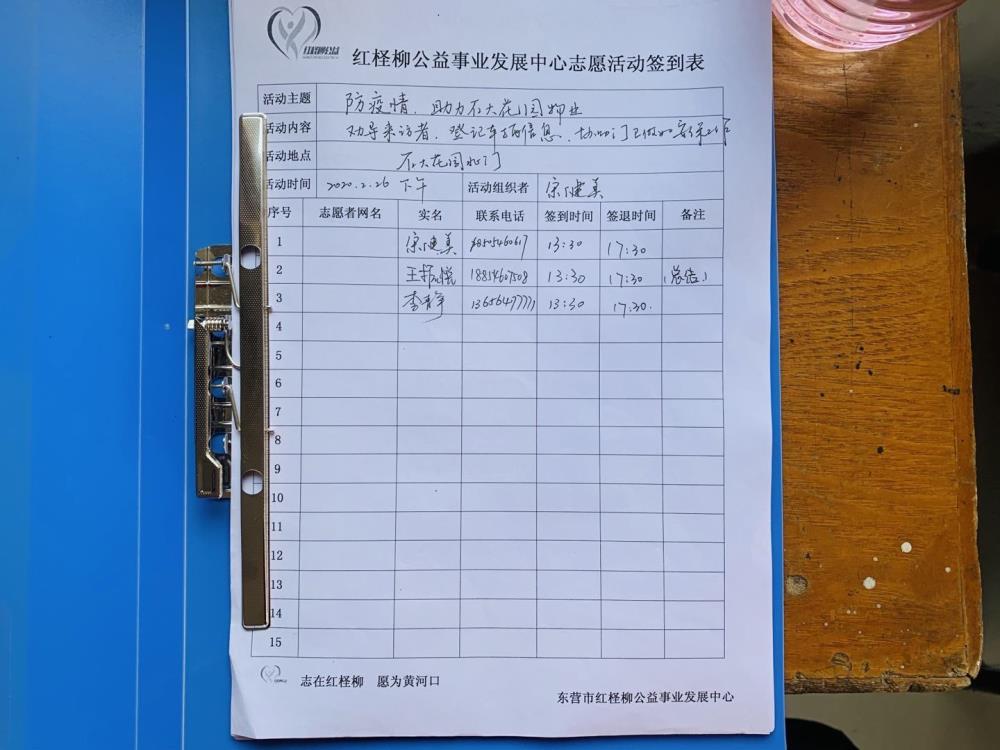 红柽柳公益
红柽柳公益事业发展中心志愿活动签到表
活动主题 防疫情、助力石大花园物业
活动内容 劝导来访者、登记车辆信息、协助门卫做好安保工作
活动地点 石大花园北门
活动时间 2020.2.26 下午 活动组织者 宗健美
序号 志愿者网名 实名 联系电话 签到时间 签退时间 备注
1 宗健美 18505460617 13:30 17:30
2 王振悦 18814607508 13:30 17:30
3 李静 13656477771 13:30 17:30.
4
5
6
7
8
9
10
11
12
13
14
15
志在红柽柳 愿为黄河口
东营市红柽柳公益事业发展中心